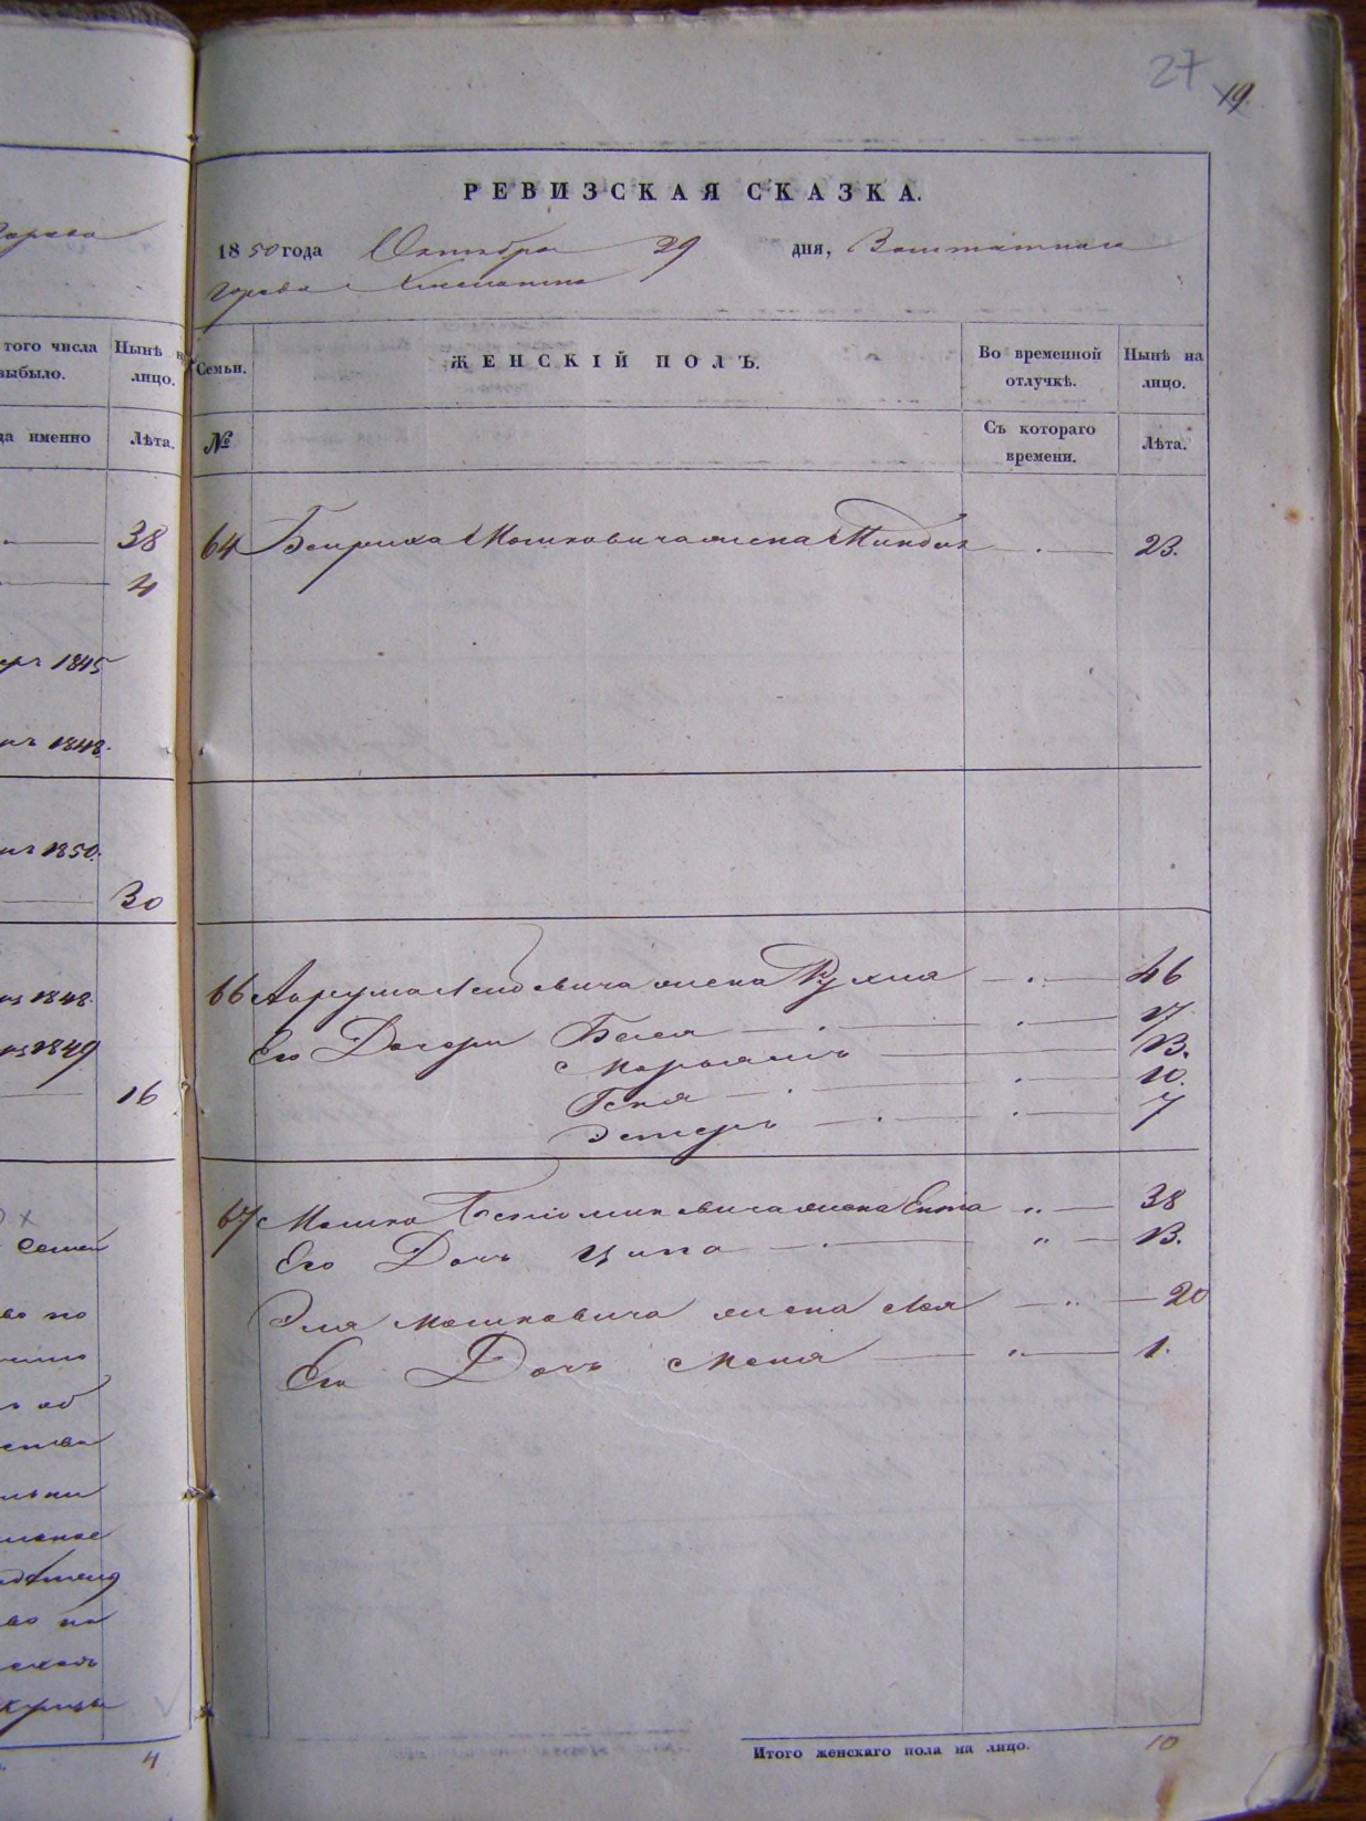 27
19.
РЕВИЗСКАЯ СКАЗКА.
1850 года Октября 29 дня, Заштатнаго
города Хмельника
Семьи. ЖЕНСКІЙ ПОЛЪ. Во временной отлучкѣ. Нынѣ на лицо.
№ Съ котораго времени. Лѣта.
64 Мошковича жена Миндля 23.
66 жена Рухля 46
Его Дочери Бейля 17
Марьямъ 13.
Геня 10.
Эстеръ 7
67 Мошка Беніоминовича жена Ента 38
Его Дочь Ципа 13.
Эля Мошковича жена Лея 20
Его Дочь Меня 1.
Итого женскаго пола на лицо. 10
города
того числа выбыло. Нынѣ на лицо.
да именно Лѣта.
38
4
1845
1848.
1850.
30
1848.
1849
16
х
Семей
во по
об
4